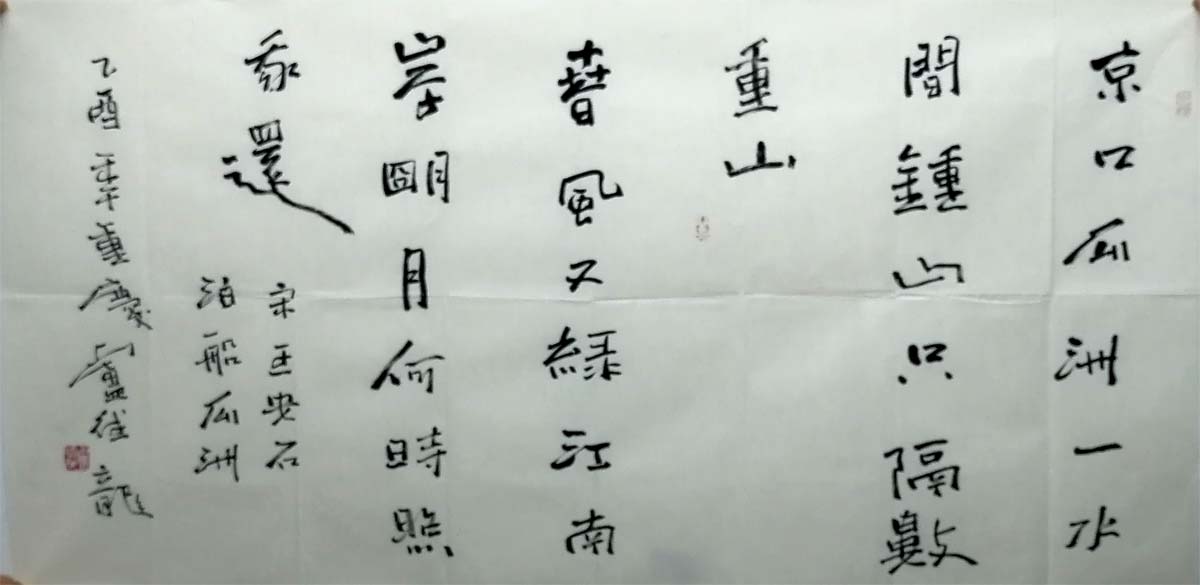 京口瓜洲一水
間鍾山只隔數
重山
春風又綠江南
岸朙月何時照
我還
宋王安石
泊船瓜洲
乙酉年重慶盧徳龍